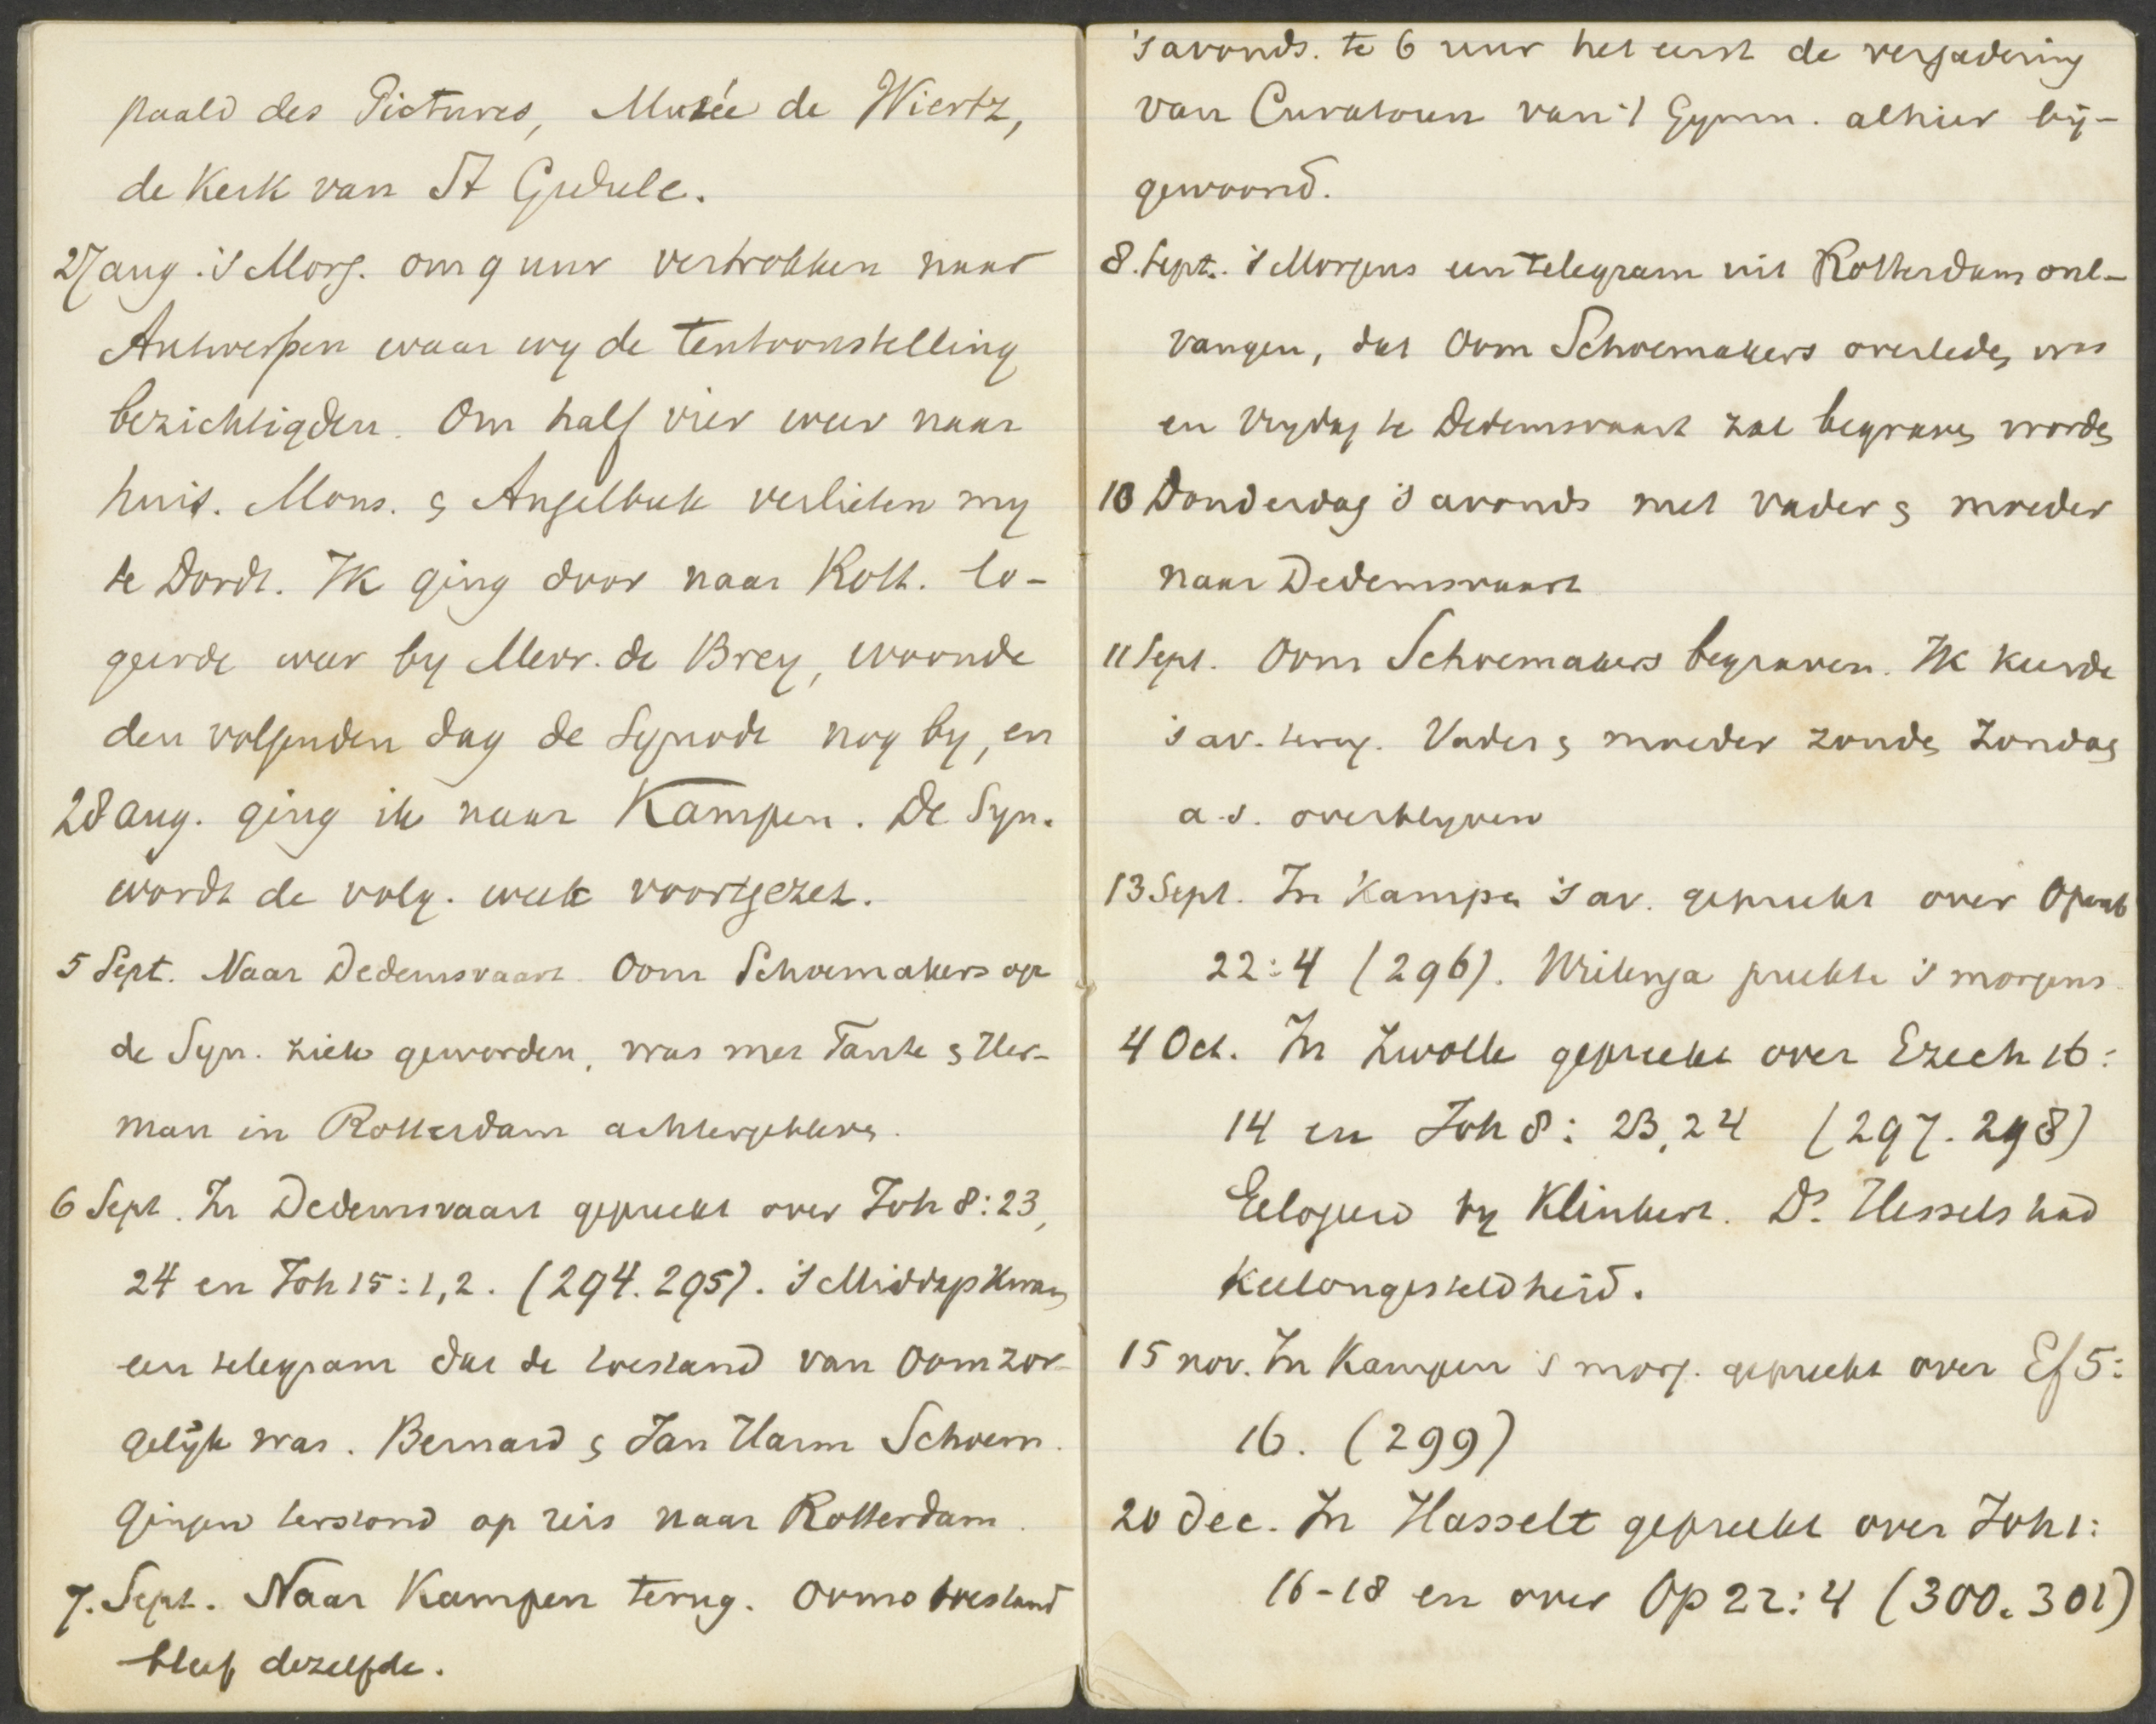 paald des Pictures, Musée de Wiertz,
de Kerk van St Gudule.
27 aug. 's Morg. om 9 uur vertrokken naar
Antwerpen waar wy de tentoonstelling
bezichtigden. Om half vier weer naar
huis. Mons. & Angelbeek verlieten my
te Dordt. Ik ging door naar Rott. lo-
geerde weer by Mevr. de Brey, woonde
den volgenden dag de Synode nog by, en
28 aug. ging ik naar Kampen. De Syn.
wordt de volg. week voortgezet.
5 Sept. Naar Dedemsvaart. Oom Schoemakers op
de Syn. ziek geworden, was met Tante & Her-
man in Rotterdam achtergebleven.
6 Sept. In Dedemsvaart gepreekt over Joh 8:23,
24 en Joh 15:1,2. (294.295). 's Middags kwam
een telegram dat de toestand van Oom zor-
gelijk was. Bernard & Jan Harm Schoem.
gingen terstond op reis naar Rotterdam.
7. Sept. Naar Kampen terug. Ooms toestand
bleef dezelfde.
's avonds. te 6 uur het eerst de vergadering
van Curatoren van 't Gymn. alhier bij-
gewoond.
8. Sept. 's Morgens een telegram uit Rotterdam ont-
vangen, dat Oom Schoemakers overleden was
en Vrydag te Dedemsvaart zal begraven worden
10 Donderdag 's avonds met vader & moeder
naar Dedemsvaart
11 Sept. Oom Schoemakers begraven. Ik keerde
's av. terug. Vader & moeder zouden Zondag
a.s. overblyven
13 Sept. In Kampen 's av. gepreekt over Openb
22:4 (296). Wielenga preekte 's morgens.
4 Oct. In Zwolle gepreekt over Ezech 16:
14 en Joh 8: 23,24 (297.298)
Gelogeerd by Klinkert. Ds. Hessels had
Keelongesteldheid.
15 nov. In Kampen 's morg. gepreekt over Ef 5:
16. (299)
20 Dec. In Hasselt gepreekt over Joh 1:
16-18 en over Op 22:4 (300.301)